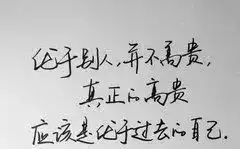 优于别人,并不高贵,
真正的高贵
应该是优于过去的自己.